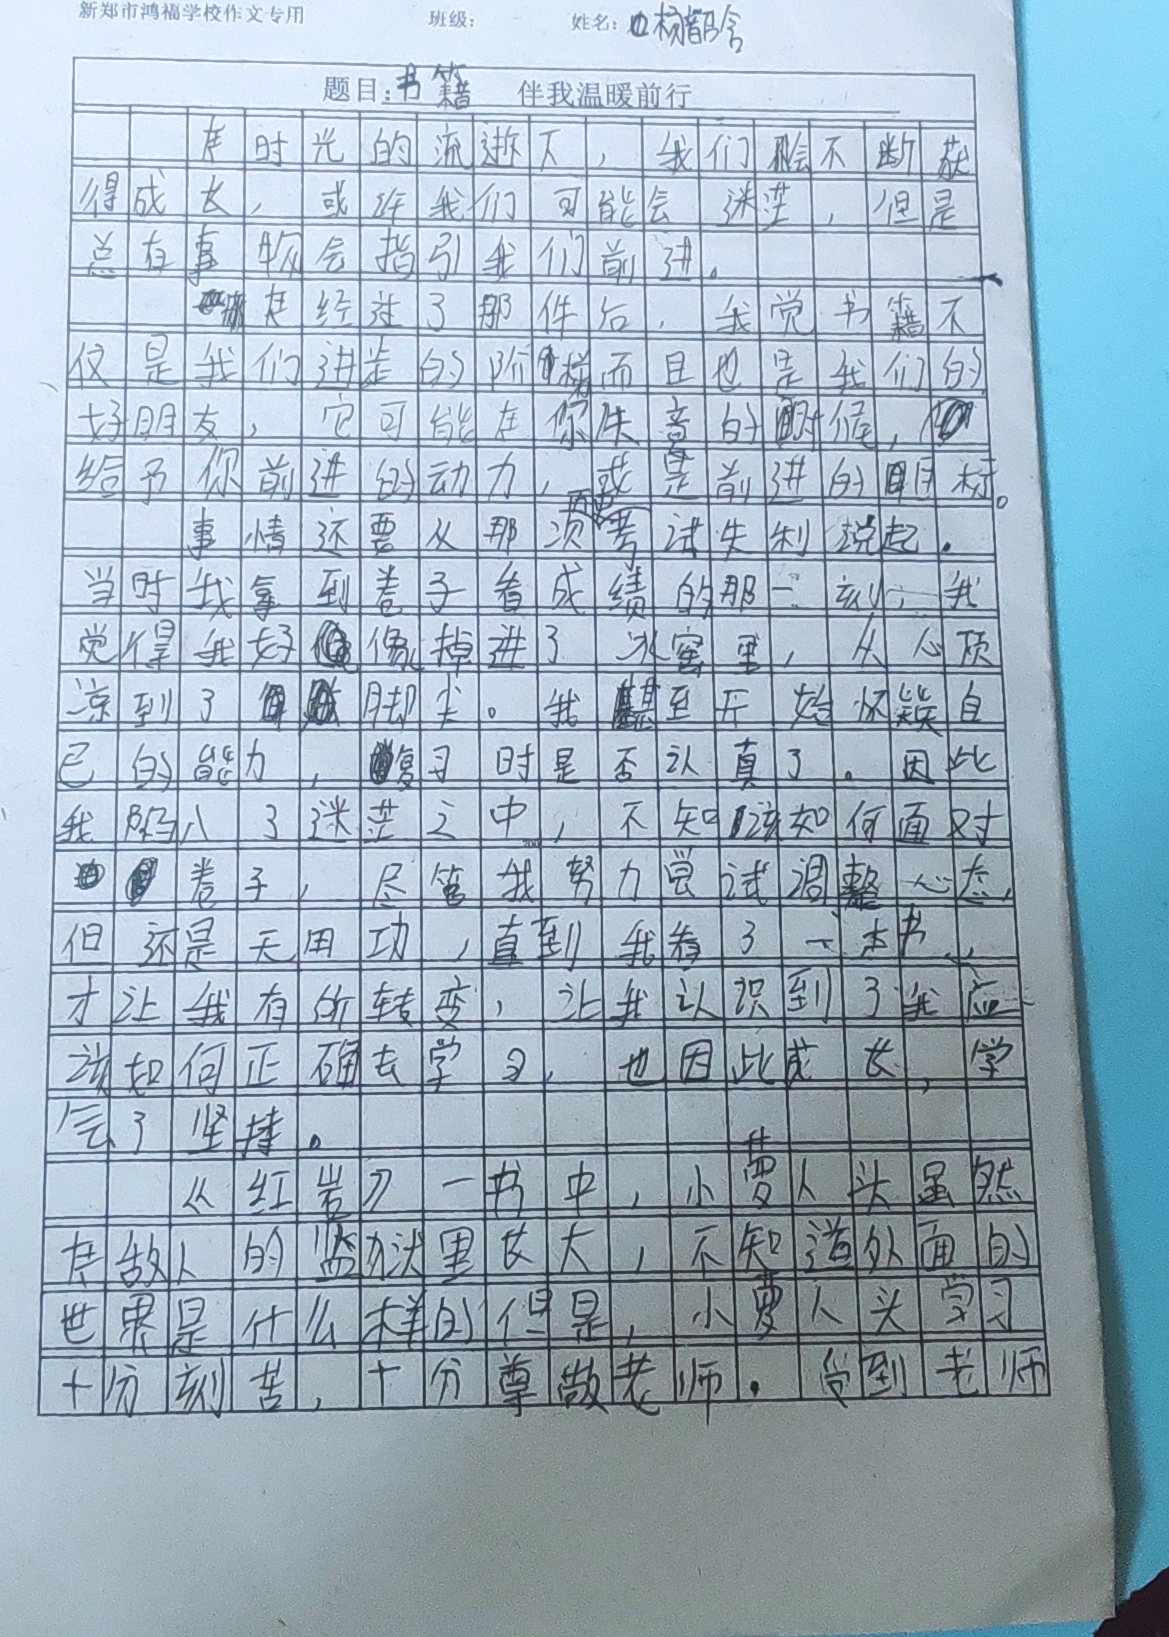 新郑市鸿福学校作文专用 班级： 姓名：
题目：书籍 伴我温暖前行
在时光的流逝下，我们会不断获
得成长，或许我们可能会迷茫，但是
总有事物会指引我们前进。
在经过了那件后，我觉书籍不
仅是我们进步的阶梯而且也是我们的
好朋友，它可能在你失意的时候，
给予你前进的动力，或是前进的目标。
事情还要从那次考试失利说起。
当时我拿到卷子看成绩的那一刻，我
觉得我好像掉进了冰窖里，从心顶
凉到了脚尖。我甚至开始怀疑自
己的能力，复习时是否认真了。因此
我陷入了迷茫之中，不知该如何面对
卷子，尽管我努力尝试调整心态，
但还是无用功，直到我看了一本书，
才让我有所转变，让我认识到了我应
该如何正确去学习，也因此成长，学
会了坚持。
《红岩》一书中，小萝人头虽然
在敌人的监狱里长大，不知道外面的
世界是什么样的但是，小萝人头学习
十分刻苦，十分尊敬老师。受到老师